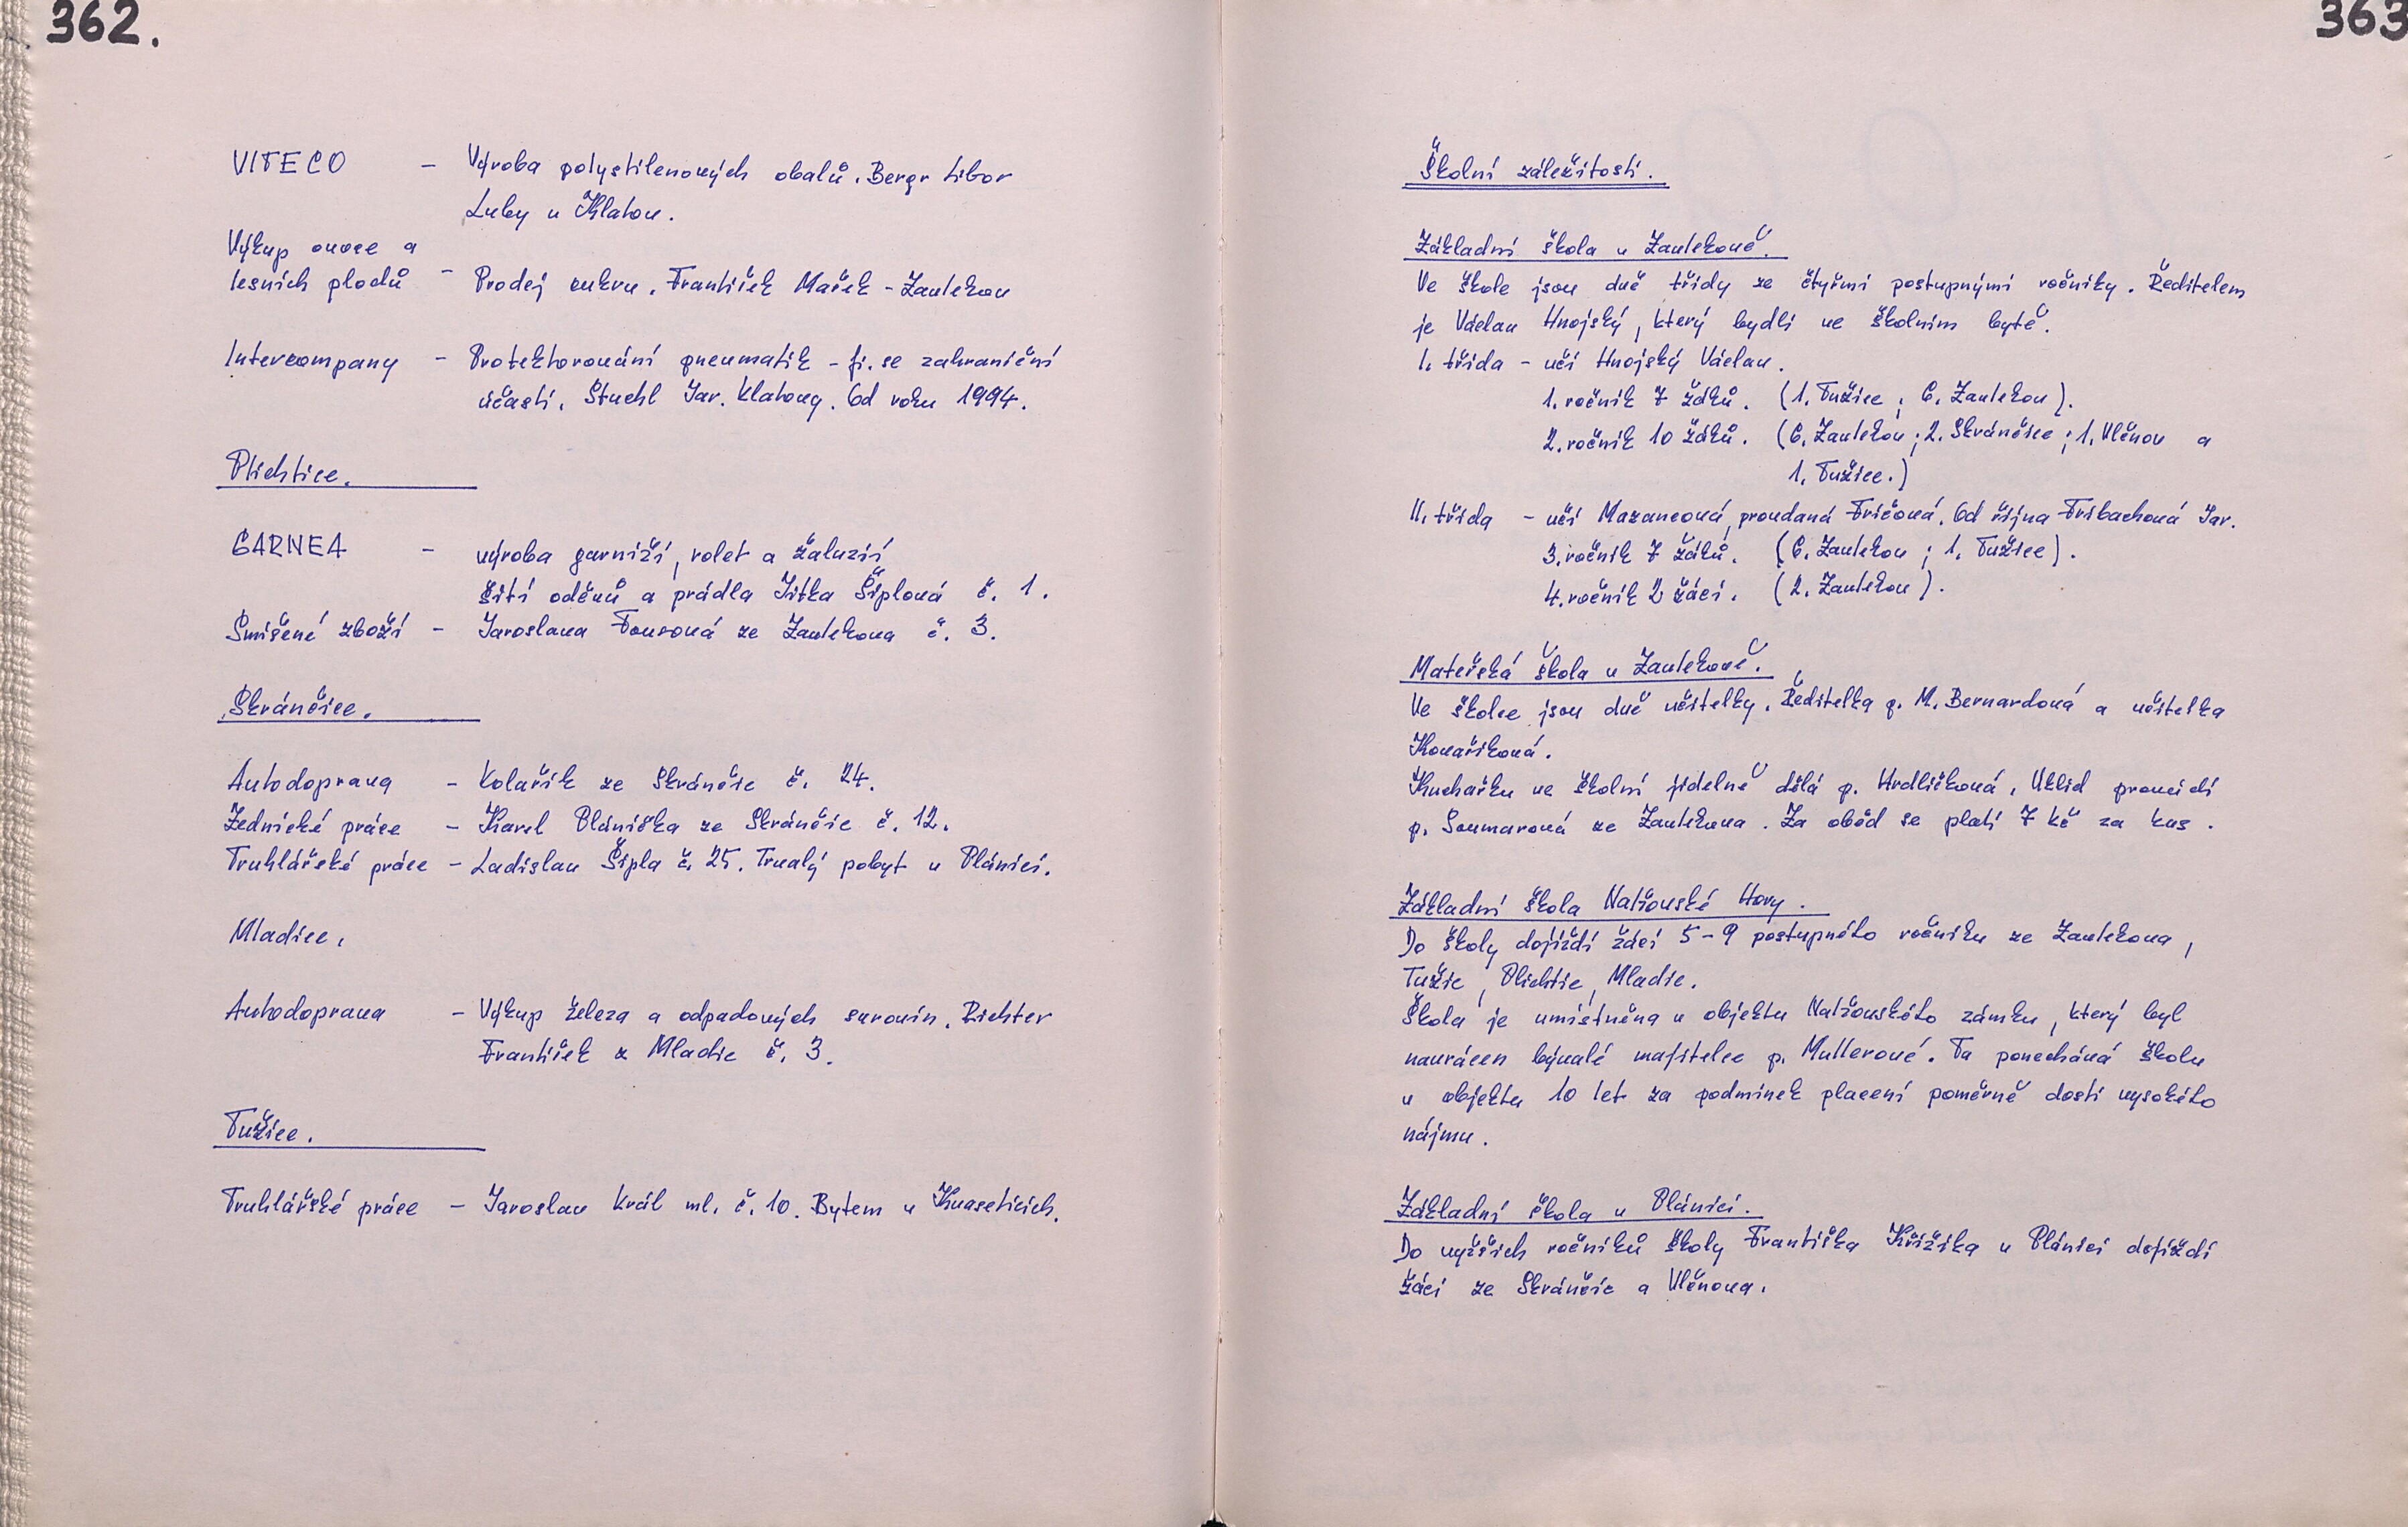 362.
VITECO – Výroba polystilenových obalů. Bergr Libor
Luby u Klatov.
Výkup ovoce a
lesních plodů – Prodej cukru. František Mařek – Zavlekov
Intercompany – Protektorování pneumatik – fi. se zahraniční
účastí. Stuchl Jar. Klatovy. Od roku 1994.
Plichtice.
GARNEA – výroba garniží, rolet a žaluzií
šití oděvů a prádla Jitka Šiplová č. 1.
Smíšené zboží – Jaroslava Tousová ze Zavlekova č. 3.
Skránčice.
Autodoprava – Kolařík ze Skránčic č. 24.
Zednické práce – Karel Plánička ze Skránčic č. 12.
Truhlářské práce – Ladislav Šipla č. 25. Trvalý pobyt v Plánici.
Mladice.
Autodoprava – Výkup železa a odpadových surovin. Richter
František z Mladic č. 3.
Tužice.
Truhlářské práce – Jaroslav Král ml. č. 10. Bytem v Kvaseticích.
363
Školní záležitosti.
Základní škola v Zavlekově.
Ve škole jsou dvě třídy ze čtyřmi postupnými ročníky. Ředitelem
je Václav Hnojský, který bydlí ve školním bytě.
I. třída – učí Hnojský Václav.
1. ročník 7 žáků. (1. Tužice; 6. Zavlekov).
2. ročník 10 žáků. (6. Zavlekov; 2. Skránčice; 1. Vlčnov a
1. Tužice.)
II. třída – učí Mazancová, provdaná Fričová. Od října Tribachová Jar.
3. ročník 7 žáků. (6. Zavlekov; 1. Tužice).
4. ročník 2 žáci. (2. Zavlekov).
Mateřská škola v Zavlekově.
Ve školce jsou dvě učitelky. Ředitelka p. M. Bernardová a učitelka
Kovaříková.
Kuchařku ve školní jídelně dělá p. Hrdličková. Uklid provádí
p. Soumarová ze Zavlekova. Za oběd se platí 7 kč za kus.
Základní škola Nalžovské Hory.
Do školy dojíždí žáci 5–9 postupného ročníku ze Zavlekova,
Tužic, Plichtic, Mladic.
Škola je umístněna v objektu Nalžovského zámku, který byl
navrácen bývalé majitelce p. Mullerové. Ta ponechává školu
v objektu 10 let za podmínek placení poměrně dosti vysokého
nájmu.
Základní škola v Plánici.
Do vyšších ročníků školy Františka Křižíka v Plánici dojíždí
žáci ze Skránčic a Vlčnova.